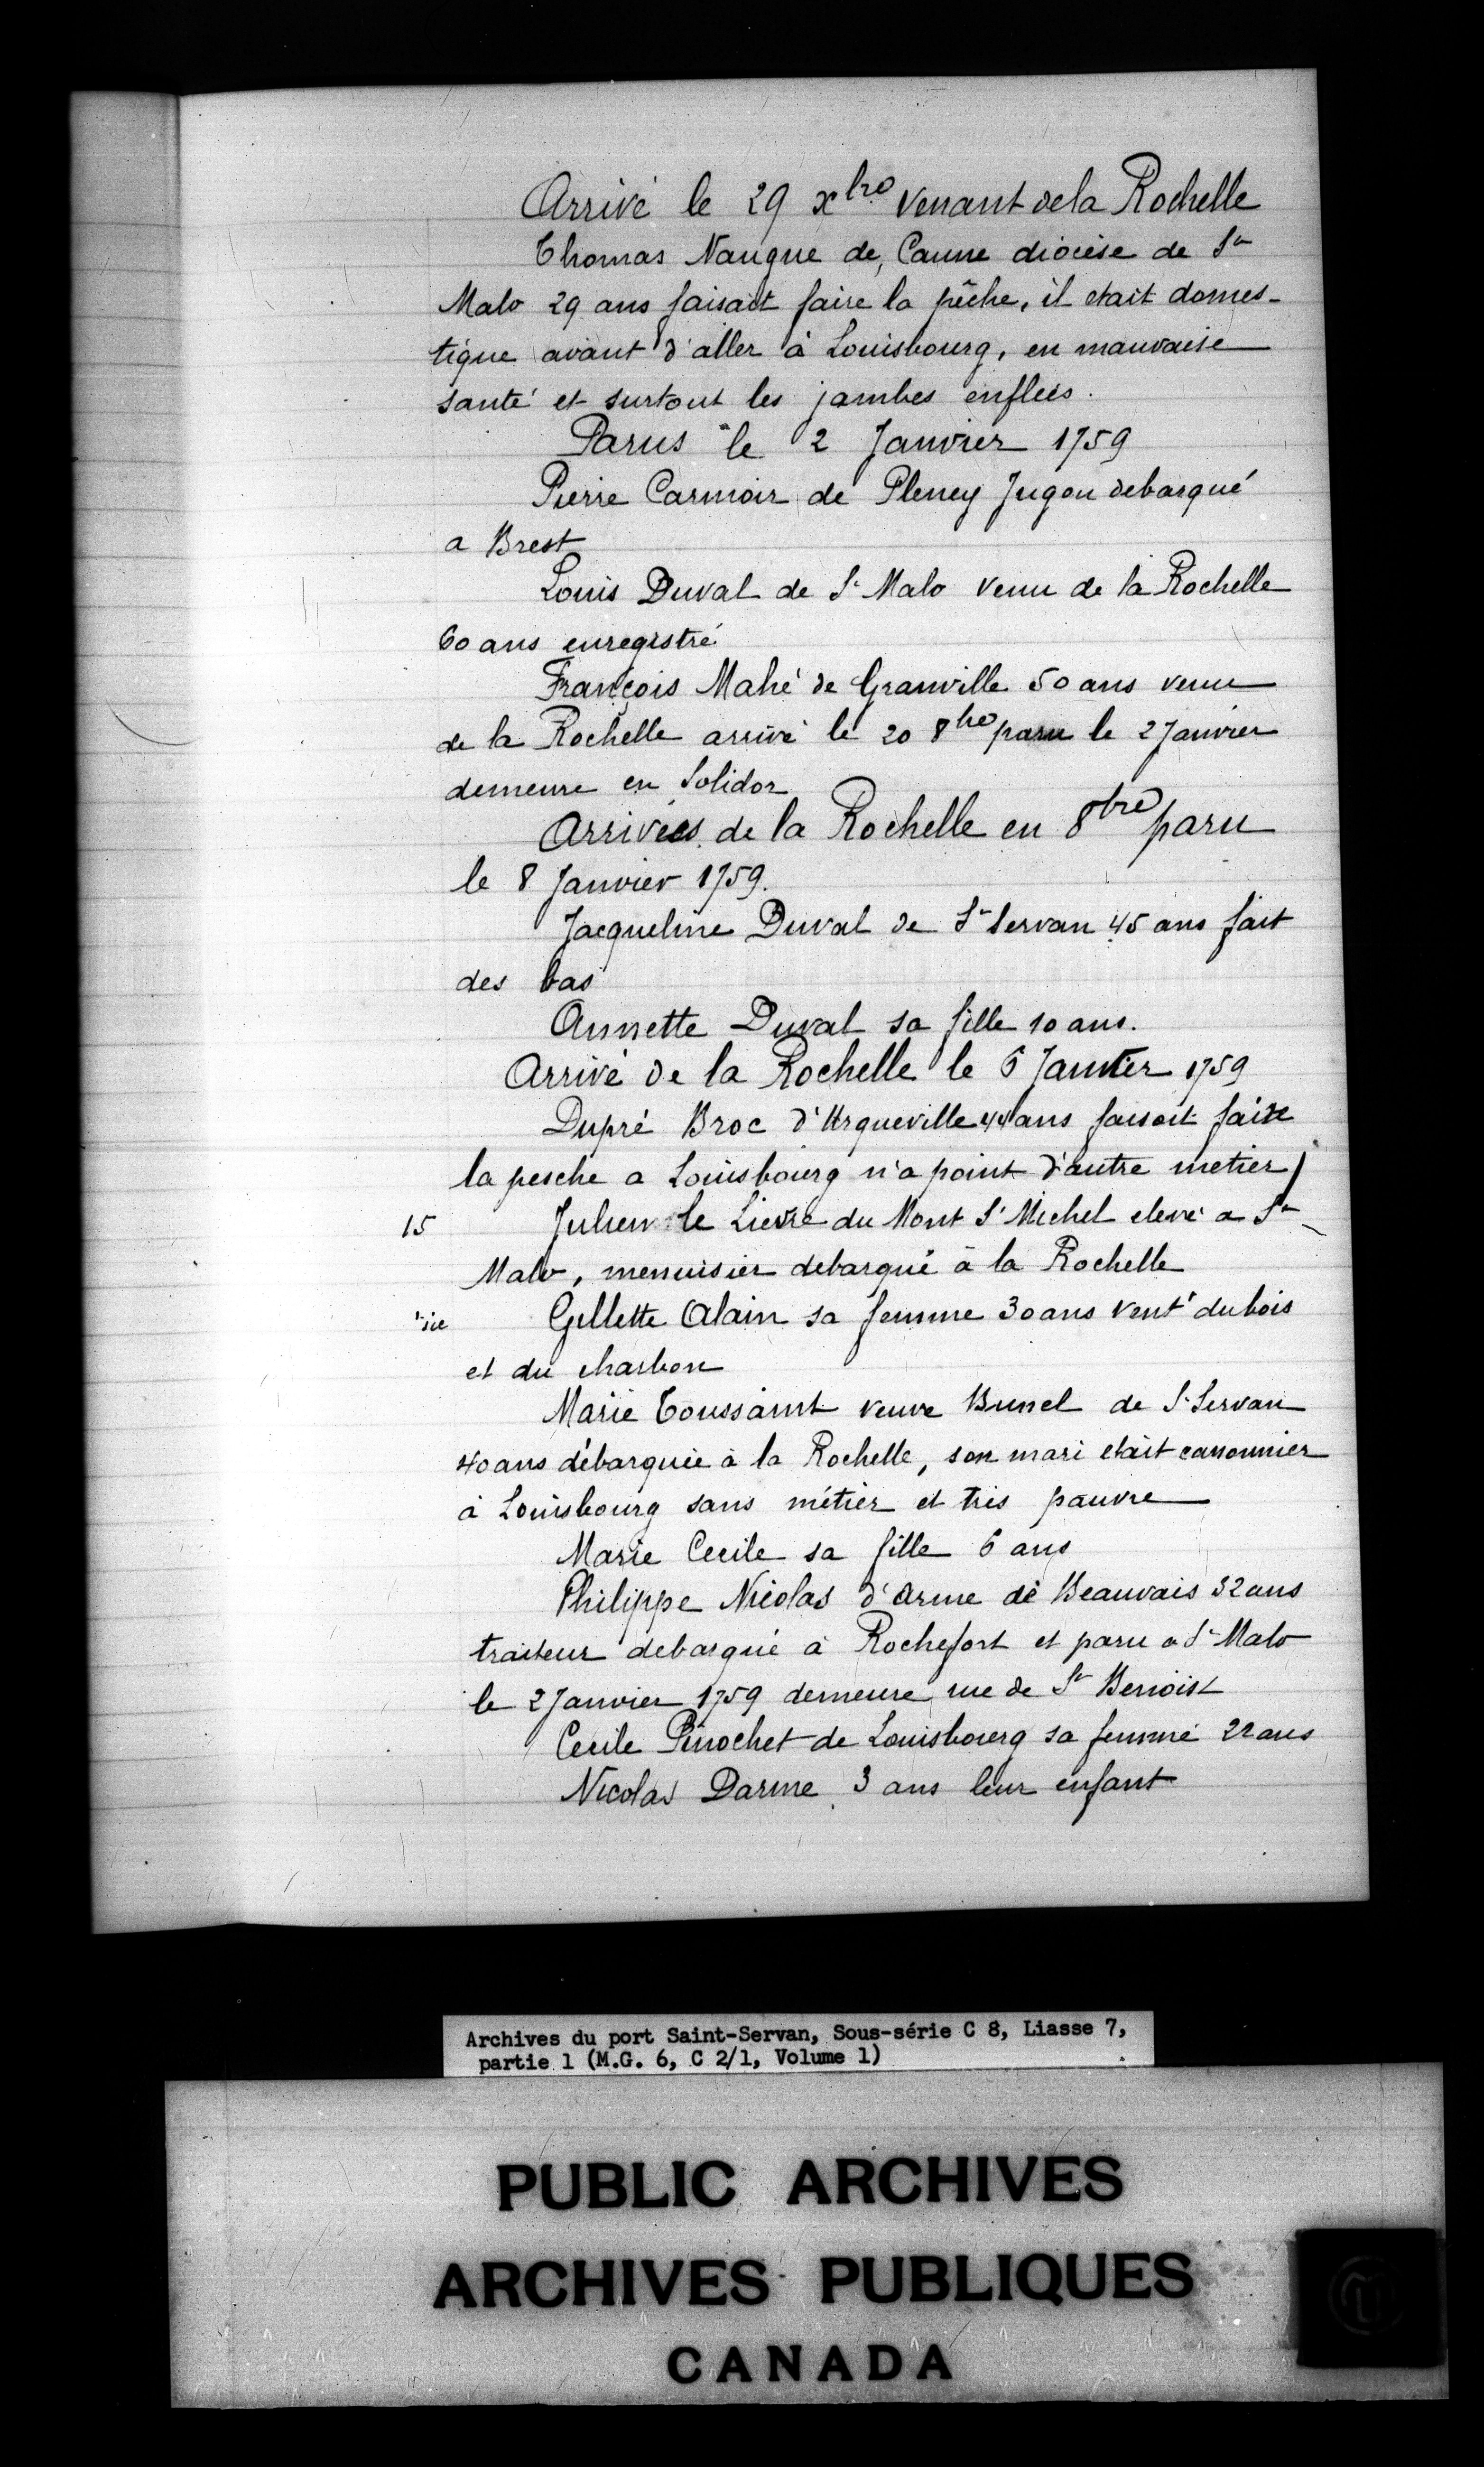 Arrivé le 29 xbre venant de la Rochelle
Thomas Naugue de Canne diocèse de St
Malo 29 ans faisait faire la pêche, il etait domes-
tique avant d'aller à Louisbourg, en mauvaise
santé et surtout les jambes enflées.
Parus le 2 Janvier 1759
Pierre Carmoir de Pleney Jugon debarqué
a Brest
Louis Duval de St Malo venu de la Rochelle
60 ans enregistré
François Mahé de Granville 50 ans venu
de la Rochelle arrivé le 20 8bre paru le 2 Janvier
demeure en Solidor
Arrivées de la Rochelle en 8bre paru
le 8 Janvier 1759.
Jacqueline Duval de St Servan 45 ans fait
des bas
Annette Duval sa fille 10 ans.
Arrivé de la Rochelle le 6 Janvier 1759
Dupré Broc d'Urqueville 44 ans faisoit faire
la pesche a Louisbourg n'a point d'autre metier
15 Julien le Lievre du Mont St Michel elevé a St
Malo, menuisier debarqué à la Rochelle
Gillette Alain sa femme 30 ans vent du bois
et du charbon
Marie Toussaint veuve Bunel de St Servan
40 ans débarquée à la Rochelle, son mari etait canonnier
à Louisbourg sans métier et très pauvre
Marie Cecile sa fille 6 ans
Philippe Nicolas d'Arme de Beauvais 32 ans
traiteur debarqué à Rochefort et paru a St Malo
le 2 Janvier 1759 demeure rue de St Benoist
Cecile Pinochet de Louisbourg sa femme 22 ans
Nicolas Darme 3 ans leur enfant
Archives du port Saint-Servan, Sous-série C 8, Liasse 7,
partie 1 (M.G. 6, C 2/1, Volume 1)
PUBLIC ARCHIVES
ARCHIVES PUBLIQUES
CANADA